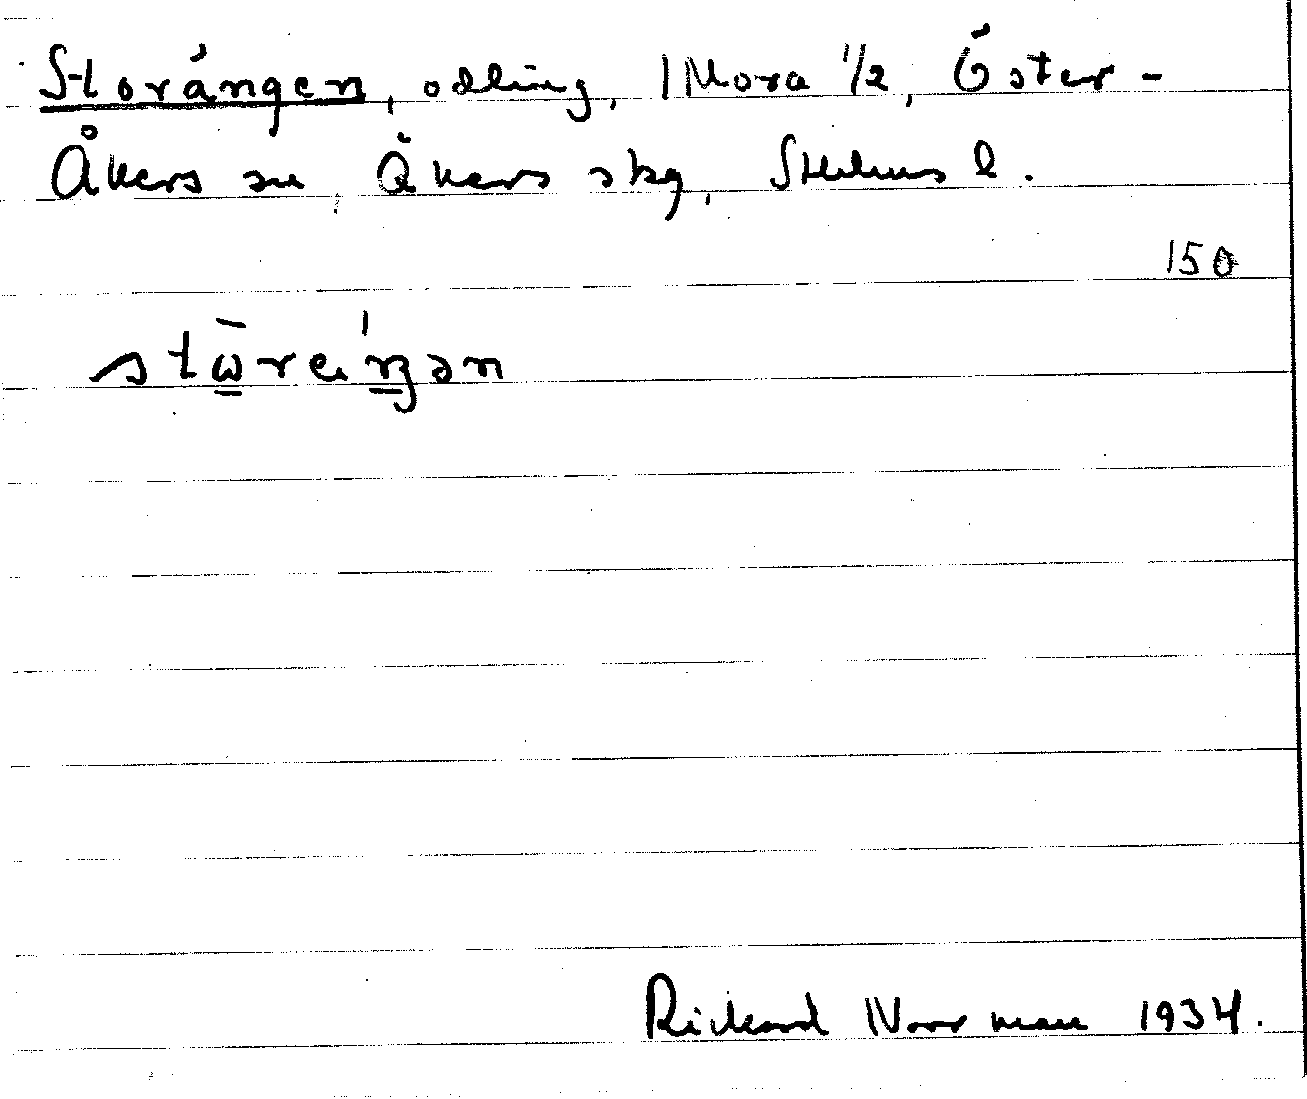 Storängen, odling, Mora 1/2, Öster-
Åkers sn Åkers skg, Sthlms l.
150
stω̄reŋən
Rickard Norrman 1934.